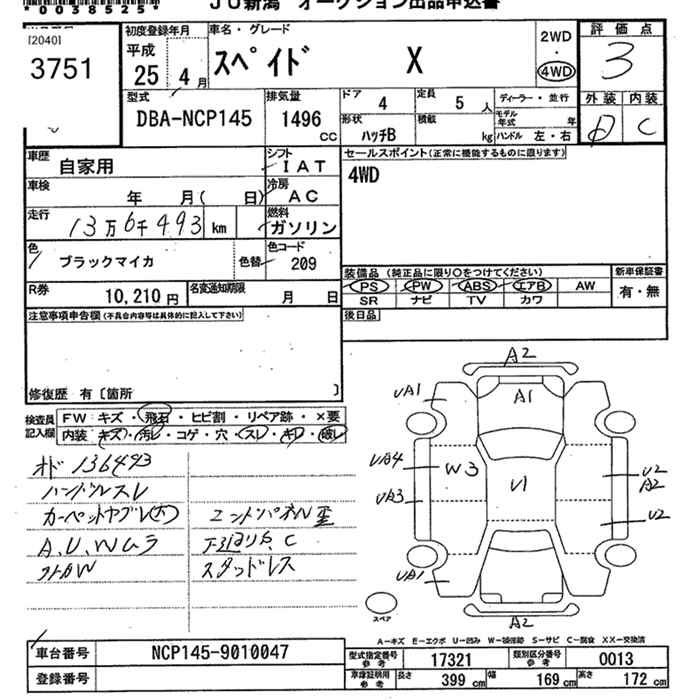 *0038525*
JU新潟 オークション出品申込書
[2040]
3751
初度登録年月
平成
25 4 月
車名・グレード
スペイド X
2WD
・
4WD
評価点
3
外装 内装
D C
型式
DBA-NCP145
排気量
1496 CC
ドア 4
定員 5 人
ディーラー・並行
形状
ハッチB
積載 kg
モデル年式 年
ハンドル 左・右
車歴 自家用
シフト IAT
車検 年 月( 日)
冷房 AC
走行 13万6千493 km
燃料
ガソリン
色 ブラックマイカ
色替
色コード
209
R券 10,210 円
名変通知期限 月 日
セールスポイント(正常に機能するものに限ります)
4WD
装備品(純正品に限り○をつけてください)
PS PW ABS エアB AW
SR ナビ TV カワ
新車保証書
有・無
後日品
注意事項申告欄(不具合内容等は具体的に記入して下さい)
修復歴 有〔箇所 〕
検査員
記入欄
FW キズ・飛石・ヒビ割・リペア跡・×要
内装 キズ・汚レ・コゲ・穴・スレ・キレ・破レ
オド 136493
ハンドルスレ
カーペットヤブレ(大)
A.U.Wムラ
エンドパネル歪
下廻りS.C
スタッドレス
A2
UA1
A1
UA4
W3
U1
UA3
U2
A2
U2
UA1
A2
スペア
A-キズ E-エクボ U-凹み W-補修跡 S-サビ C-腐食 XX-交換済
車台番号 NCP145-9010047
登録番号
型式指定番号
参考
17321
類別区分番号
参考
0013
車庫証明用
参考
長さ 399 cm 幅 169 cm 高さ 172 cm